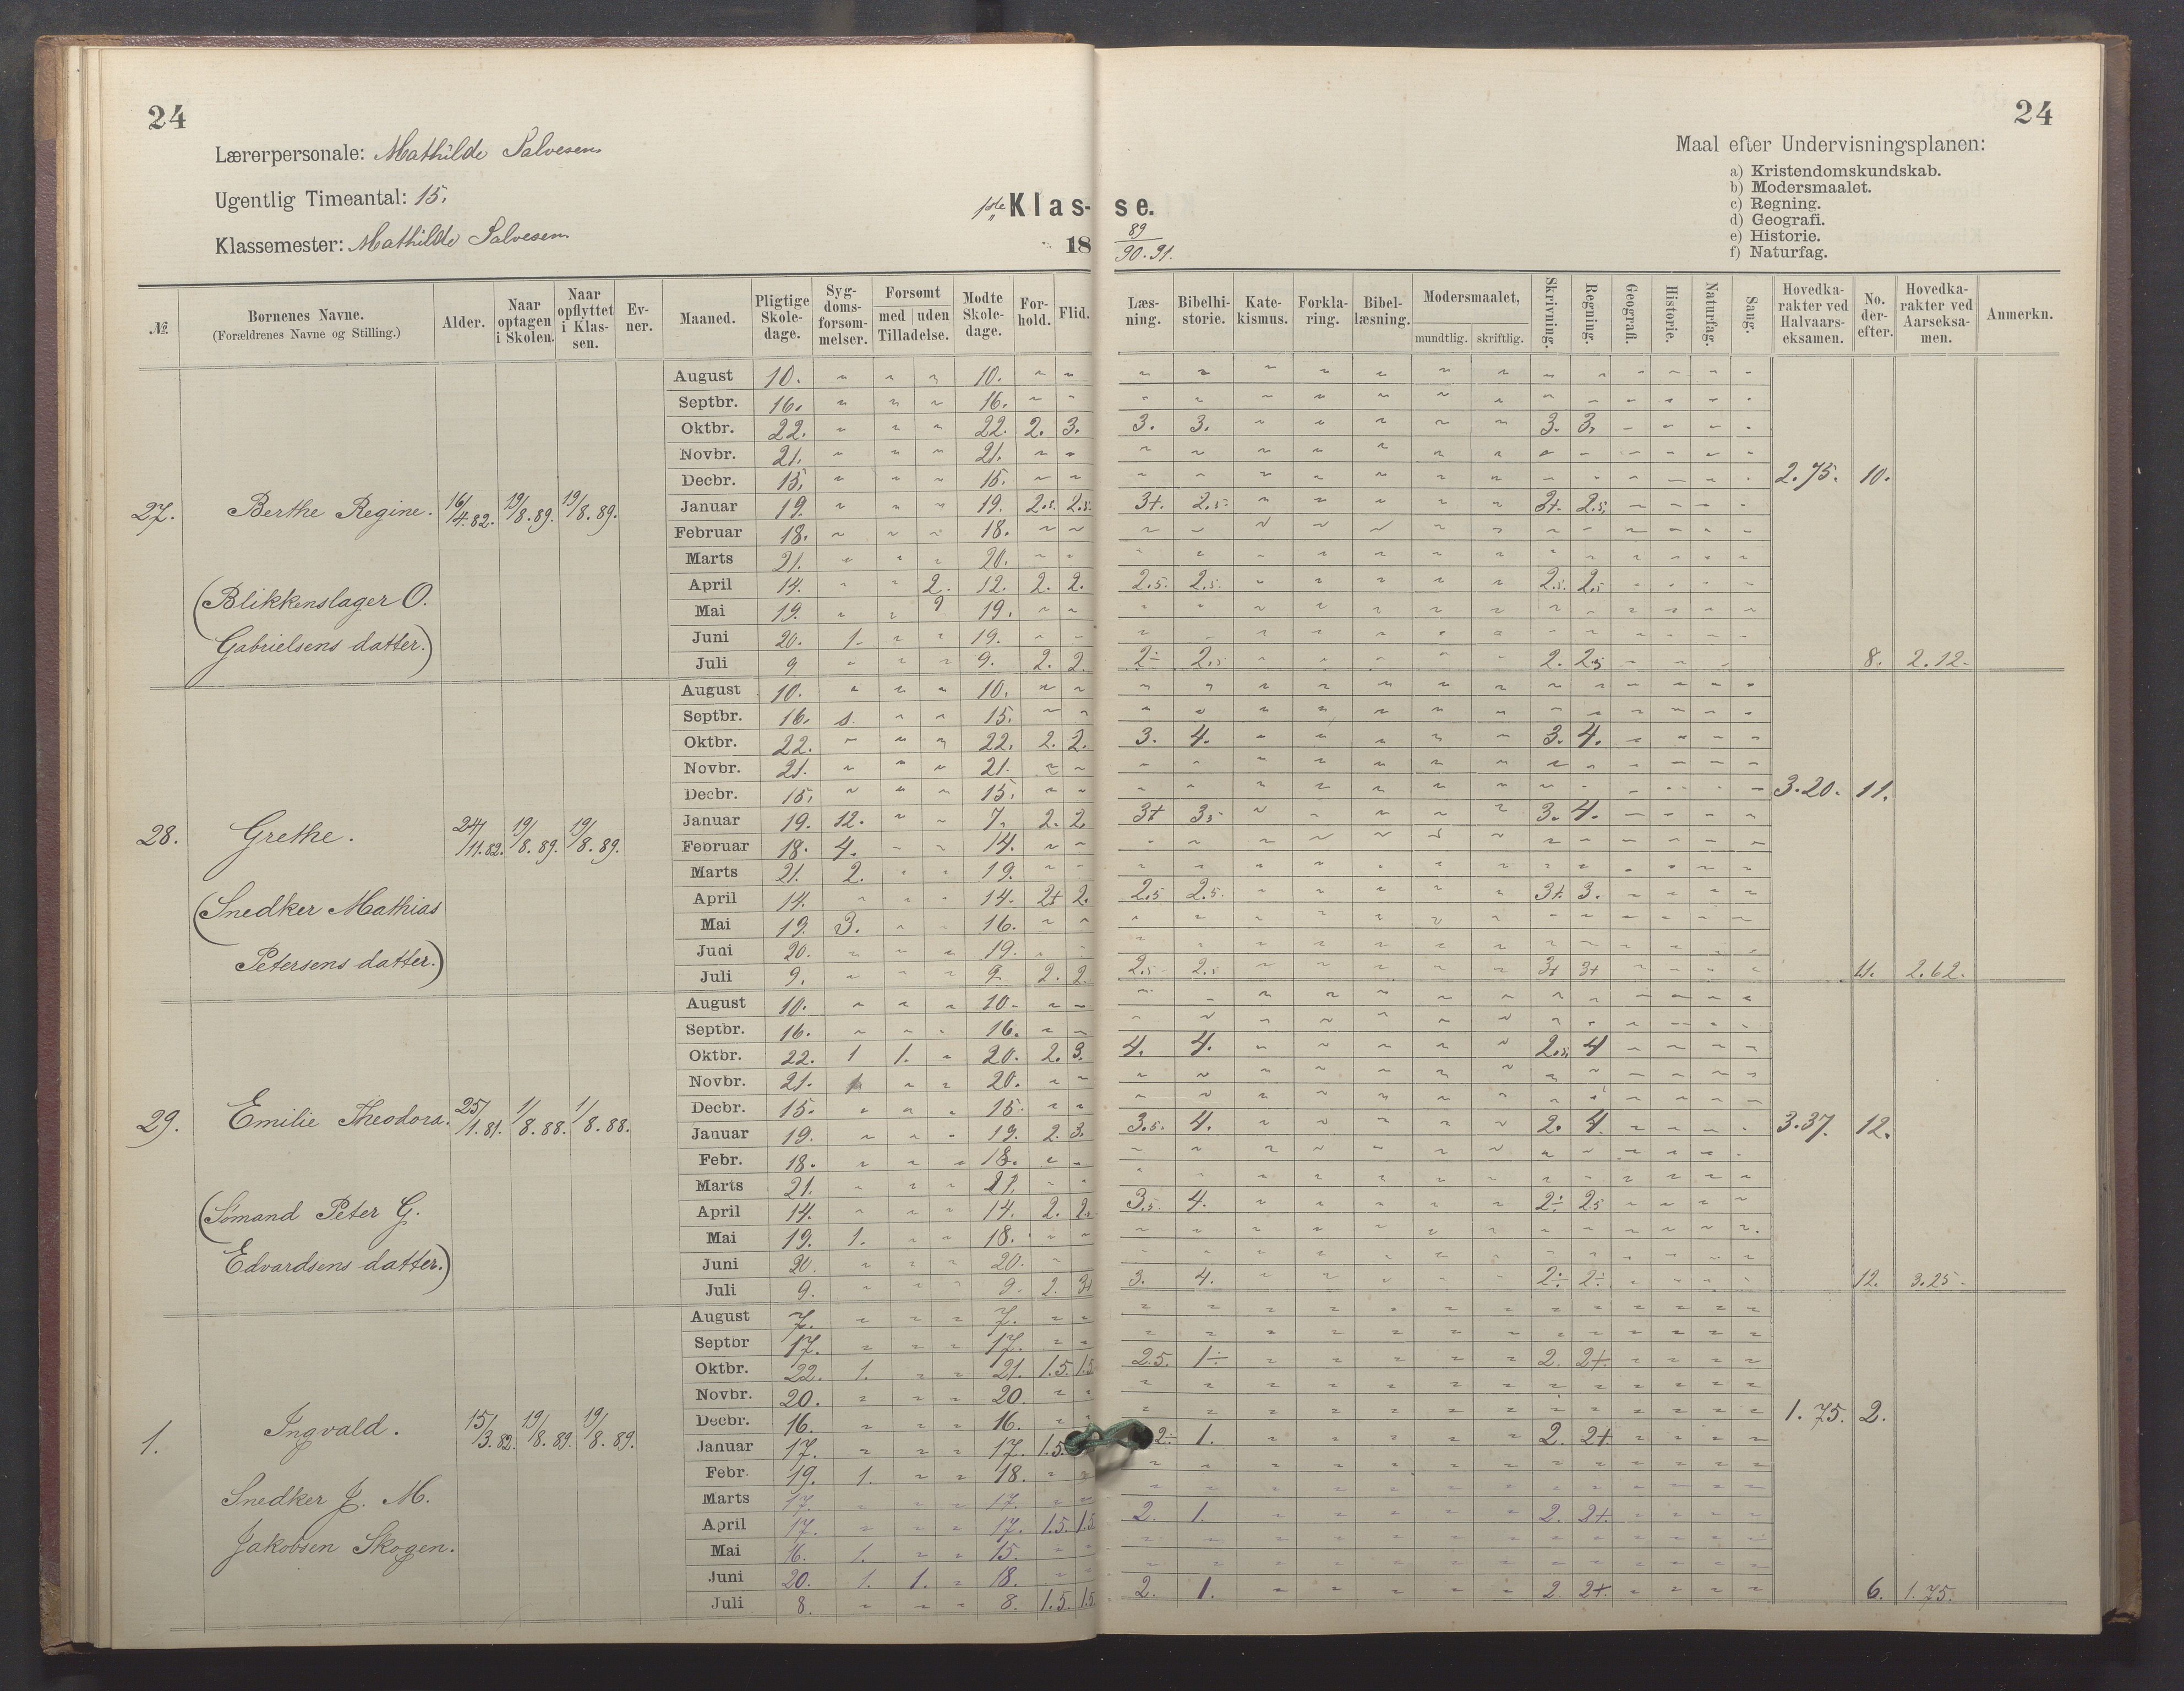 24
24
Lærerpersonale: Mathilde Salvesen
Ugentlig Timeantal: 15.
Klassemester: Mathilde Salvesen
1ste Klasse.
18 89/90-91.
Maal efter Undervisningsplanen:
a) Kristendomskundskab.
b) Modersmaalet.
c) Regning.
d) Geografi.
e) Historie.
f) Naturfag.
№. Bornenes Navne. (Forældrenes Navne og Stilling.) Alder. Naar optagen i Skolen. Naar opflyttet i Klassen. Evner. Maaned. Pligtige Skoledage. Sygdomsforsommelser. Forsomt med uden Tilladelse. Modte Skoledage. Forhold. Flid. Læsning. Bibelhistorie. Katekismus. Forklaring. Bibellæsning. Modersmaalet, mundtlig. skriftlig. Skrivning. Regning. Geografi. Historie. Naturfag. Sang. Hovedkarakter ved Halvaarseksamen. No. derefter. Hovedkarakter ved Aarseksamen. Anmerkn.
27. Berthe Regine. 16/4.82. 19/8.89. 19/8.89.
(Blikkenslager O.
Gabrielsens datter.)
August 10. " " " 10. " "
Septbr. 16. " " " 16. " "
Oktbr. 22. " " " 22. 2. 3. 3. 3. 3. 3.
Novbr. 21. " " " 21. " "
Decbr. 15. " " " 15. " " 2.75. 10.
Januar 19. " " " 19. 2.5. 2.5. 3+. 2.5. 3+. 2.5.
Februar 18. " " " 18. " "
Marts 21. " " " 20. " "
April 14. " " 2. 12. 2. 2. 2.5. 2.5. 2.5. 2.5
Mai 19. " " 19. " "
Juni 20. 1. " " 19. " "
Juli 9. " " " 9. 2. 2. 2÷ 2.5 2. 2.5 8. 2.12.
28. Grethe. 24/11.82. 19/8.89. 19/8.89.
(Snedker Mathias
Petersens datter.)
August 10. " " " 10. " "
Septbr. 16. " " 15. " "
Oktbr. 22. " " " 22. 2. 2. 3. 4. 3. 4.
Novbr. 21. " " " 21. " "
Decbr. 15. " " " 15. " " 3.20. 11.
Januar 19. 12. " " 7. 2. 2. 3+ 3.5 3. 4.
Februar 18. 4. " " 14. " "
Marts 21. 2. " " 19. " "
April 14. " " " 14. 2+ 2. 2.5 2.5. 3+. 3.
Mai 19. 3. " " 16. " "
Juni 20. " " " 19. " "
Juli 9. " " " 9. 2. 2. 2.5 2.5 3+ 3+ 11. 2.62.
29. Emilie Theodora. 25/1.81. 1/8.88. 1/8.88.
(Sømand Peter G.
Edvardsens datter.)
August 10. " " " 10. " "
Septbr. 16. " " " 16. " "
Oktbr. 22. 1 1. " 20. 2. 3. 4. 4. 2.5. 4
Novbr. 21. 1 " " 20. " "
Decbr. 15. " " " 15. " "
Januar 19. " " " 19. 2. 3. 3.5. 4. 2. 4. 3.37. 12.
Febr. 18. " " " 18. " "
Marts 21. " " " 21. " "
April 14. " " " 14. 2. 2. 3.5. 4. 2÷ 2.5
Mai 19. 1. " " 18. " "
Juni 20. " " " 20. "
Juli 9. " " " 9. 2. 3+ 3. 4. 2÷ 2÷ 12. 3.25
1. Ingvald. 15/3.82. 19/8.89. 19/8.89.
Snedker J. M.
Jakobsen Skogen.
August 7. " " " 7. " "
Septbr 17. " " " 17. " "
Oktbr. 22. 1. " " 21. 1.5. 1.5 2.5. 1÷ 2. 2+.
Novbr. 20. " " " 20. " "
Decbr. 16. " " " 16. " " 1.75. 2.
Januar 17. " " " 17. 1.5. 2÷ 1. 2. 2+.
Febr. 19. 1. " " 18. " "
Marts 17. " " " 17. " "
April 17. " " " 17. 1.5. 1.5 2. 1. 2. 2+.
Mai 16. 1. " " 15. " "
Juni 20. 1. 1. " 18. " "
Juli 8. " " " 8. 1.5. 1.5 2. 1. 2 2+. 6. 1.75.